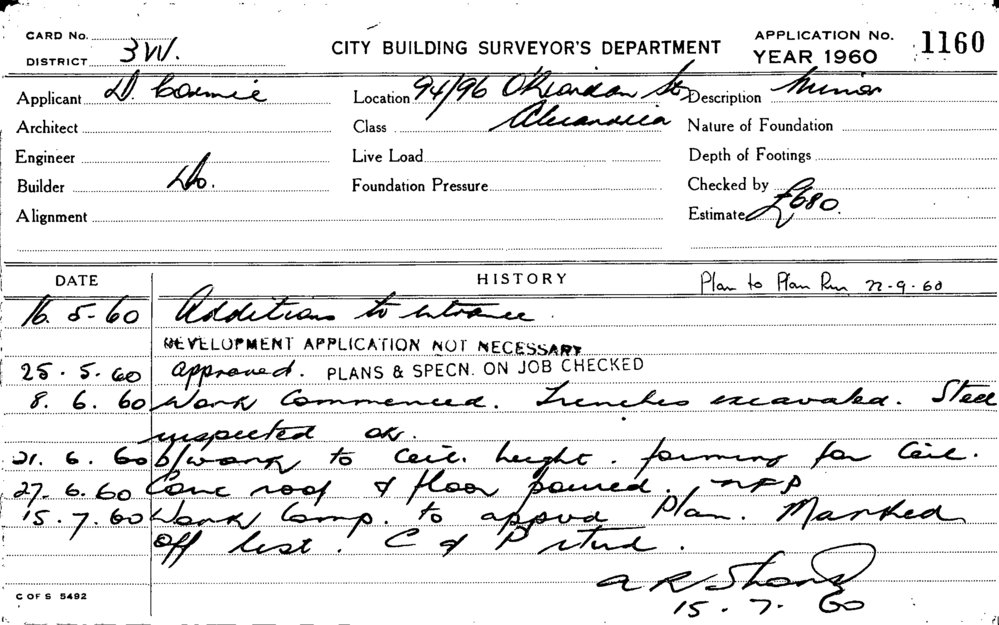 CARD No.
DISTRICT 3W.
CITY BUILDING SURVEYOR'S DEPARTMENT
APPLICATION No. 1160
YEAR 1960
Applicant D. Cormie
Location 94/96 O'Riordan St
Description Minor
Architect
Class Alexandria
Nature of Foundation
Engineer
Live Load
Depth of Footings
Builder Do.
Foundation Pressure
Checked by
Alignment
Estimate £680.
DATE
HISTORY
Plan to Plan Rm 22-9-60
16. 5-60 Additions to entrance.
DEVELOPMENT APPLICATION NOT NECESSARY
25. 5. 60 approved. PLANS & SPECN. ON JOB CHECKED
8. 6. 60 Work Commenced. Trenches excavated. Steel
inspected ok.
21. 6. 60 b/work to ceil. height. forming for Ceil.
27. 6. 60 Conc roof & floor poured. NFP
15. 7. 60 Work Comp. to appvd Plan. Marked
off list. C & P rtnd.
15. 7. 60
C OF S 5492